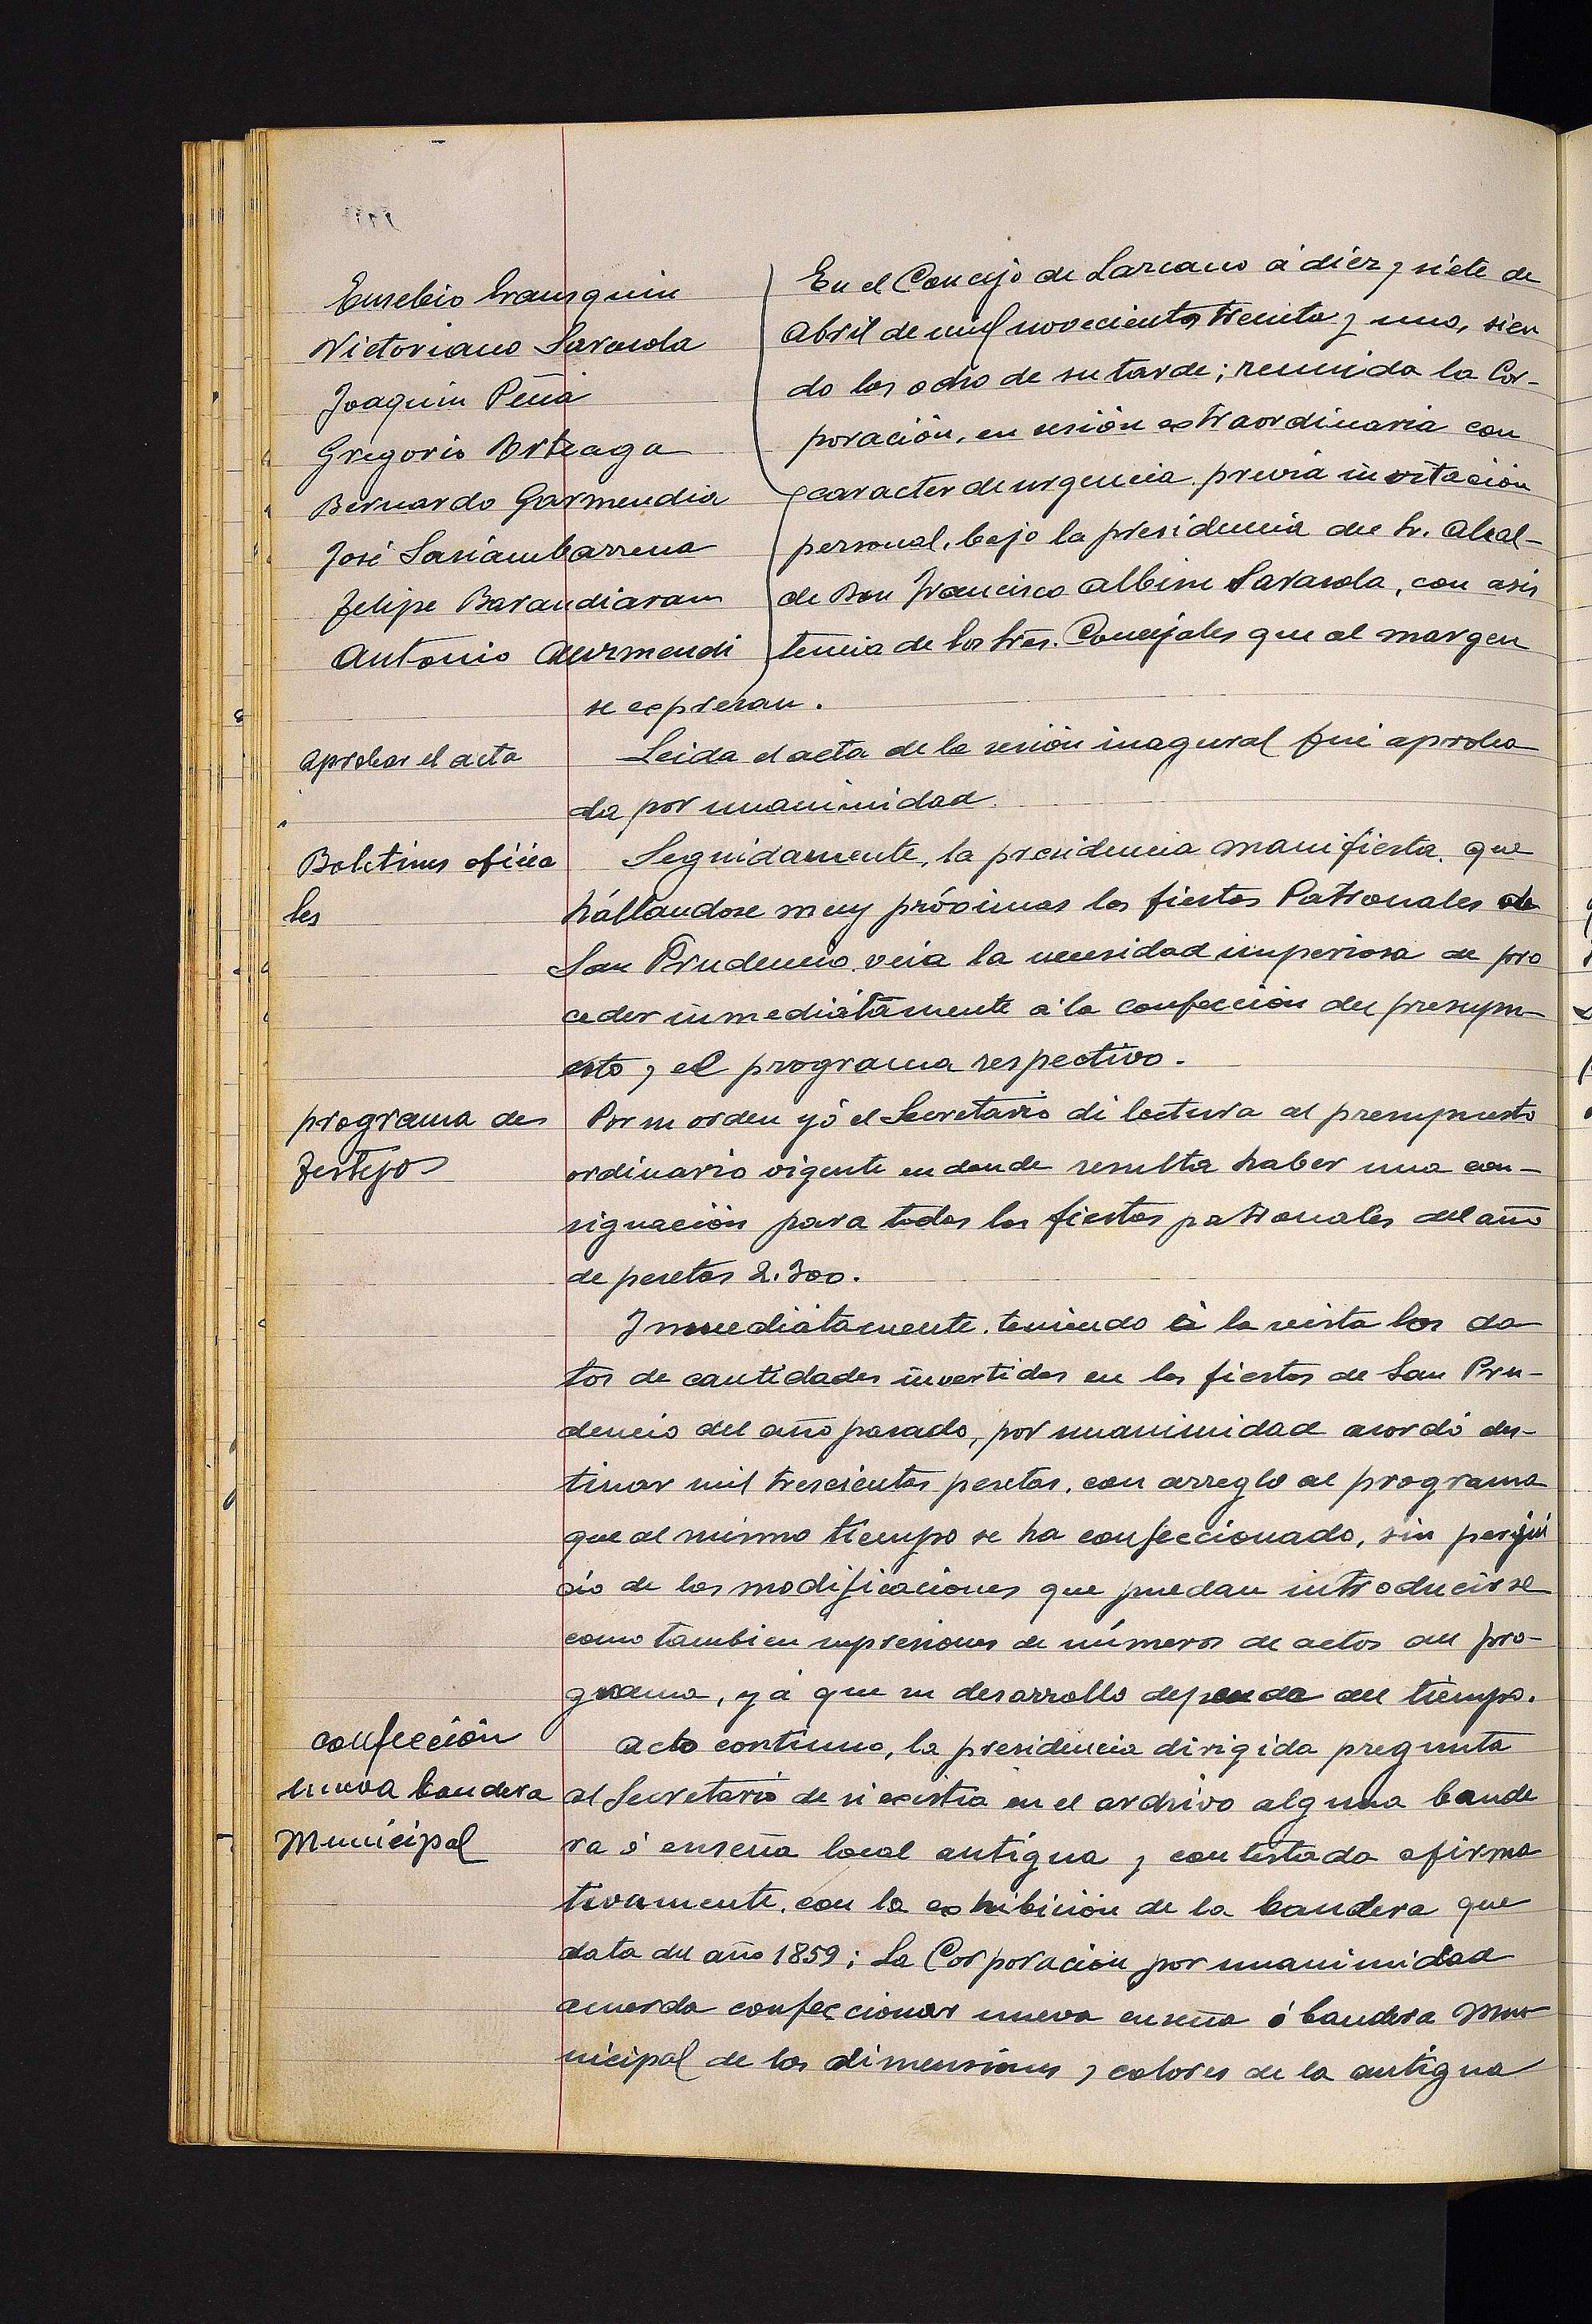 Eusebio Irausquin
Victoriano Sarasola
Joaquin Peña
Gregorio Arteaga
Bernardo Garmendia
José Sasiambarrena
Felipe Barandiaran
Antonio Aurmendi
En el Concejo de Lazcano á diez y siete de
Abril de mil novecientos treinta y uno, sien
do las ocho de su tarde; reunida la Cor-
poración, en sesión extraordinaria con
caracter de urgencia, previa invitación
personal, bajo la presidencia del Sr. Alcal-
de Don Francisco Albisu Sarasola, con asis
tencia de los Sres. Concejales que al margen
se expresan.
Aprobar el acta
Leida el acta de la sesión inagural fué aproba
da por unanimidad.
Boletines oficia
les
Seguidamente, la presidencia manifiesta, que
hállandose muy próximas las fiestas Patronales de
San Prudencio, veia la necesidad imperiosa de pro
ceder inmediátamente á la confección del presupu-
esto y el programa respectivo.
programa de
festejos
Por su orden yó el Secretario di lectura al presupuesto
ordinario vigente en donde resulta haber una con-
signación para todas las fiestas patronales del año
de pesetas 2.300.
Inmediátamente, teniendo á la vista los da
tos de cantidades invertidas en las fiestas de San Pru-
dencio del año pasado, por unanimidad acordó des-
tinar mil trescientas pesetas, con arreglo al programa
que al mismo tiempo se ha confeccionado, sin perjui
cio de las modificaciones que puedan introducirse
como tambien supresiones de números de actos del pro-
grama, yá que su desarrollo depende del tiempo.
confección
nueva bandera
Municipal
Acto continuo, la presidencia dirigida pregunta
al Secretario de si existia en el archivo alguna bande
ra ó enseña local antígua y contestada afirma
tivamente, con la exhibición de la bandera que
data del año 1859; La Corporación por unanimidad
acuerda confeccionar nueva enseña ó bandera Mu-
nicipal de las dimensiones y colores de la antígua